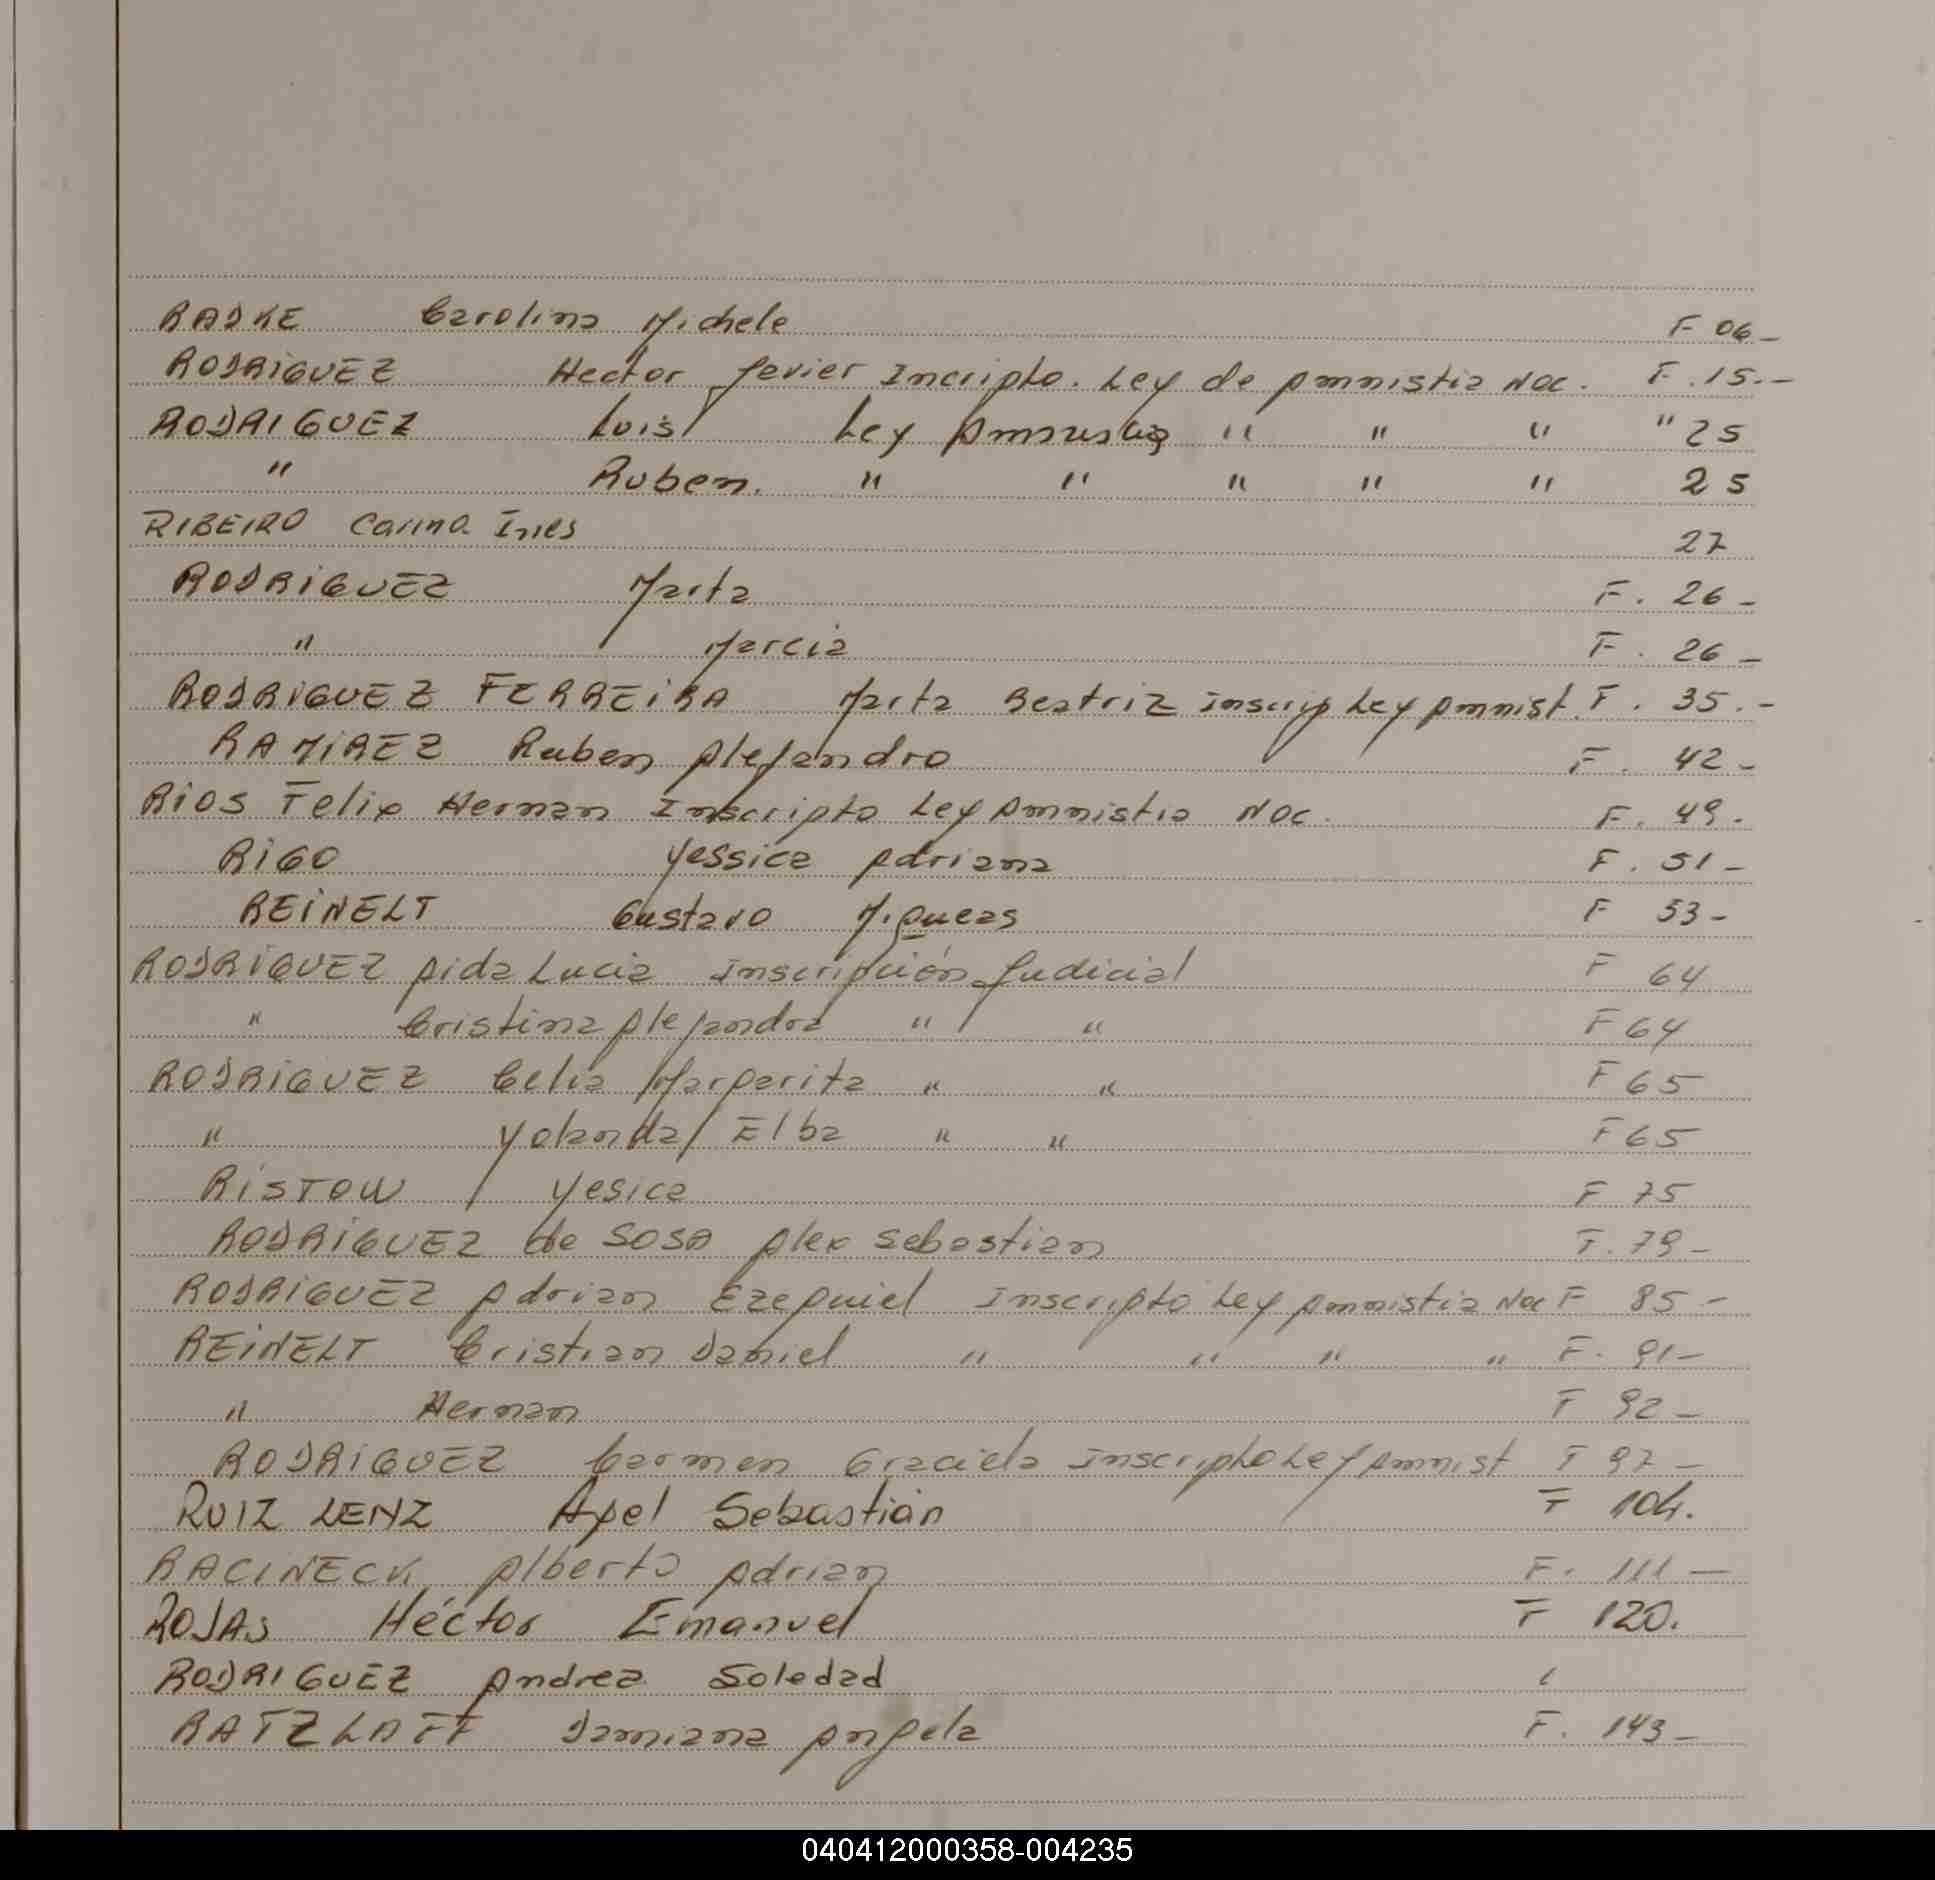 RADKE Carolina Michele F 06 -
RODRIGUEZ Hector Javier Incripto. Ley de Amnistia Nac. F. 15. -
RODRIGUEZ Luis Ley Amnistia " " " " 25
" Ruben. " " " " " 25
RIBEIRO Carina Ines 27
RODRIGUEZ Marta F. 26 -
" Marcia F. 26 -
RODRIGUEZ FERREIRA Marta Beatriz inscrip Ley Amnist. F. 35. -
RAMIREZ Ruben Alejandro F. 42 -
RIOS Felix Hernan Inscripto Ley Amnistia Nac. F. 49.
RIGO Yessica Adriana F. 51 -
REINELT Gustavo Miqueas F 53 -
RODRIGUEZ Aida Lucia inscripción Judicial F 64
" Cristina Alejandra " " F 64
RODRIGUEZ Celia Margarita " " F 65
" Yolanda Elba " " F 65
RISTOW Yesica F 75
RODRIGUEZ de SOSA Alex Sebastian F. 79 -
RODRIGUEZ Adrian Ezequiel Inscripto Ley Amnistia Nac F 85 -
REINELT Cristian Daniel " " " " F. 91 -
" Hernan F 92 -
RODRIGUEZ Carmen Graciela inscripto Ley Amnist F 97 -
RUIZ LENZ Axel Sebastián F 104.
RACINECK Alberto Adrian F. 111 -
ROJAS Héctor Emanuel F 120.
RODRIGUEZ Andrea Soledad
RATZLAFF Damiana Angela F. 143 -
040412000358-004235